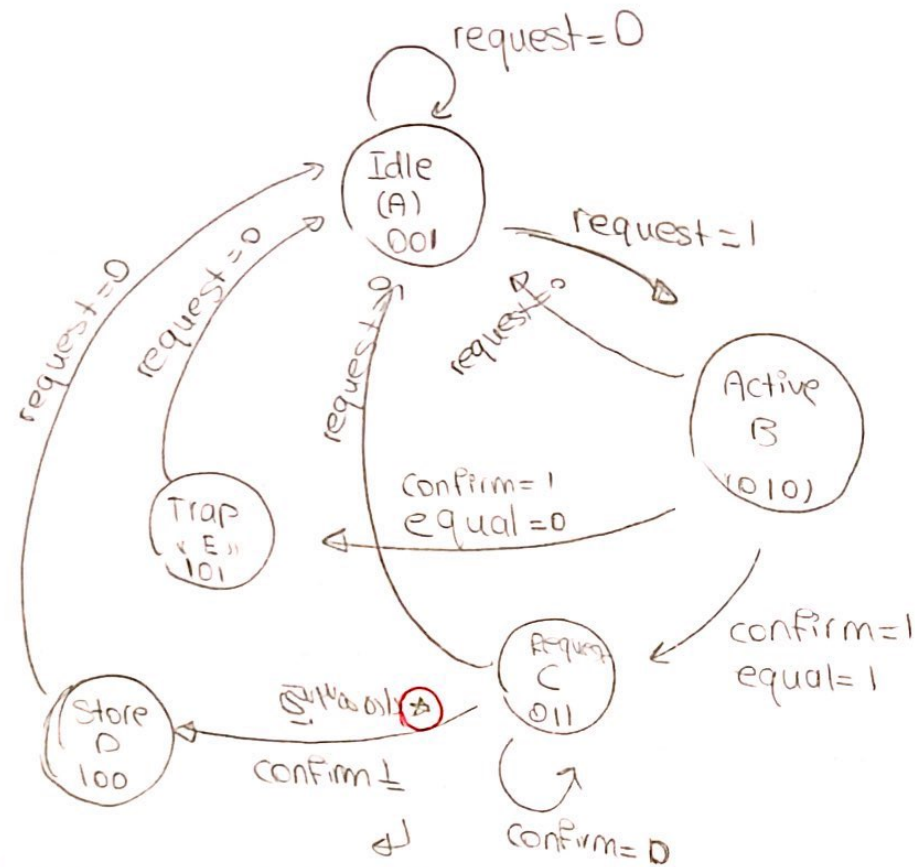 request=0
Idle
(A)
001
request=1
request=0
request=0
request=0
request=0
Active
B
(010)
confirm=1
equal=0
Trap
"E"
101
confirm=1
equal=1
Request
C
011
Store
D
100
confirm 1
confirm=0